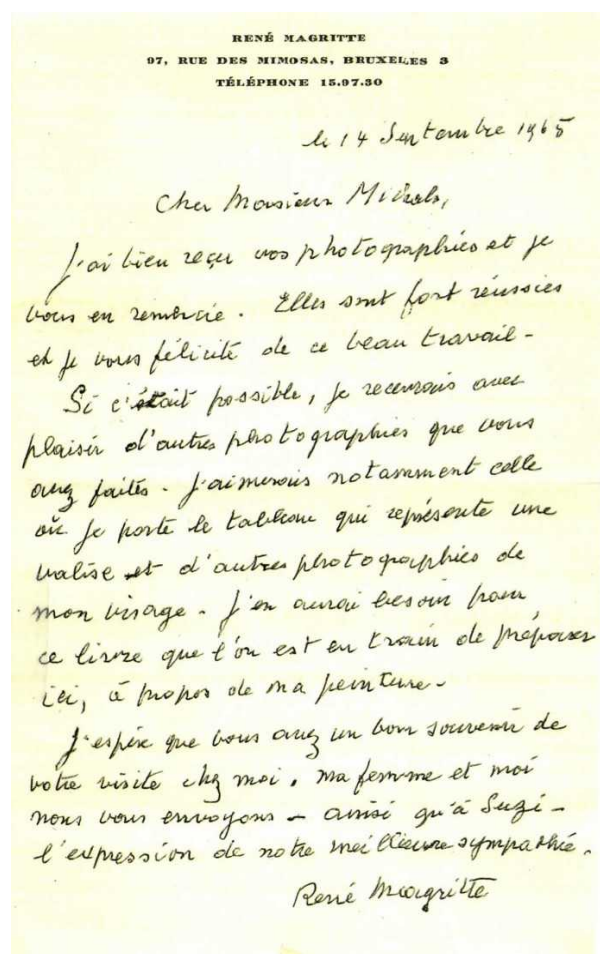 RENÉ MAGRITTE
97, RUE DES MIMOSAS, BRUXELLES 3
TÉLÉPHONE 15.97.30
le 14 Septembre 1965
Cher Monsieur Michals,
J'ai bien reçu vos photographies et je
vous en remercie. Elles sont fort réussies
et je vous félicite de ce beau travail-
Si c'était possible, je recevrais avec
plaisir d'autres photographies que vous
avez faites. J'aimerais notamment celle
où je porte le tableau qui représente une
valise et d'autres photographies de
mon visage- J'en aurai besoin pour
ce livre que l'on est en train de préparer
ici, à propos de ma peinture-
J'espère que vous avez un bon souvenir de
votre visite chez moi. Ma femme et moi
nous vous envoyons - ainsi qu'à Suzi -
l'expression de notre meilleure sympathie.
René Magritte